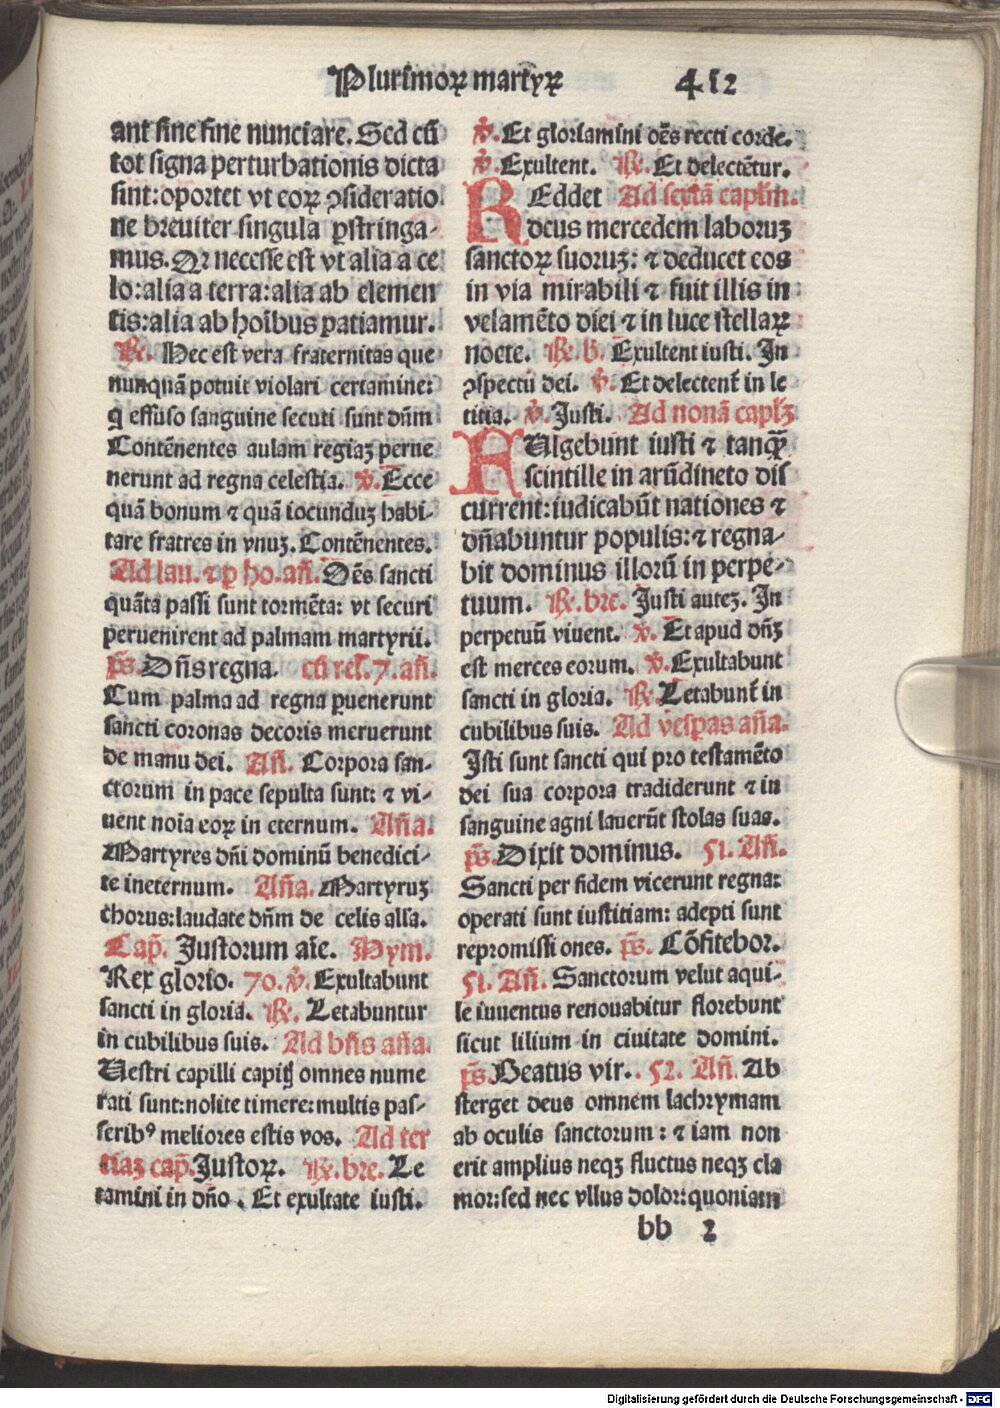 Plurimoꝝ martyꝝ 412
ant sine fine nunciare. Sed cū
tot signa perturbationis dicta
sint: oportet vt eoꝝ ꝯsideratio
ne breuiter singula ꝑstringa-
mus. Qꝛ necesse est vt alia a ce
lo: alia a terra: alia ab elemen
tis: alia ab hoībus patiamur.
℟. Hec est vera fraternitas que
nunquā potuit violari certamine:
q̄ effuso sanguine secuti sunt dn̄m
Contēnentes aulam regiaꝫ perue
nerunt ad regna celestia. ℣. Ecce
quā bonum ⁊ quā iocunduꝫ habi-
tare fratres in vnuꝫ. Contēnentes.
Ad lau. ⁊ ꝑ ho. añ. Oēs sancti
quāta passi sunt tormēta: vt securi
peruenirent ad palmam martyrii.
p̄s. Dn̄s regna. cū rel̄. 7. añ.
Cum palma ad regna ꝑuenerunt
sancti coronas decoris meruerunt
de manu dei. Añ. Corpora san-
ctorum in pace sepulta sunt: ⁊ vi-
uent noīa eoꝝ in eternum. Aña.
Martyres dn̄i dominū benedici-
te ineternum. Aña. Martyruꝫ
chorus: laudate dn̄m de celis alla.
Cap̄. Justorum aīe. Hym.
Rex glorio. 70. ℣. Exultabunt
sancti in gloria. ℟. Letabuntur
in cubilibus suis. Ad bn̄s aña.
Uestri capilli capitꝭ omnes nume
rati sunt: nolite timere: multis pas-
serib⁹ meliores estis vos. Ad ter
tiaꝫ cap̄. Justoꝝ. ℟. bre. Le
tamini in dn̄o. Et exultate iusti.
℣. Et gloriamini oēs recti corde.
℣. Exultent. ℟. Et delectētur.
REddet Ad sextā capl̄m.
deus mercedem laboruꝫ
sanctoꝝ suoruꝫ: ⁊ deducet eos
in via mirabili ⁊ fuit illis in
velamēto diei ⁊ in luce stellaꝝ
nocte. ℟. b̄. Exultent iusti. In
ꝯspectu dei. ℣. Et delectent̄ in le
titia. ℣. Justi. Ad nonā capl̄ꝫ
FUlgebunt iusti ⁊ tanqꝫ̄
scintille in arūdineto dis
current: iudicabūt nationes ⁊
dn̄abuntur populis: ⁊ regna-
bit dominus illorū in perpe-
tuum. ℟. bre. Justi auteꝫ. In
perpetuū viuent. ℣. Et apud dn̄ꝫ
est merces eorum. ℣. Exultabunt
sancti in gloria. ℟. Letabunt̄ in
cubilibus suis. Ad vesꝑas aña.
Isti sunt sancti qui pro testamēto
dei sua corpora tradiderunt ⁊ in
sanguine agni lauerūt stolas suas.
p̄s. Dixit dominus. 51. Añ.
Sancti per fidem vicerunt regna:
operati sunt iustitiam: adepti sunt
repromissiones. p̄s. Cōfitebor.
51. Añ. Sanctorum velut aqui-
le iuuentus renouabitur florebunt
sicut lilium in ciuitate domini.
p̄s. Beatus vir. 52. Añ. Ab
sterget deus omnem lachrymam
ab oculis sanctorum: ⁊ iam non
erit amplius neqꝫ fluctus neqꝫ cla
mor: sed nec vllus dolor: quoniam
bb 2
Digitalisierung gefördert durch die Deutsche Forschungsgemeinschaft - DFG